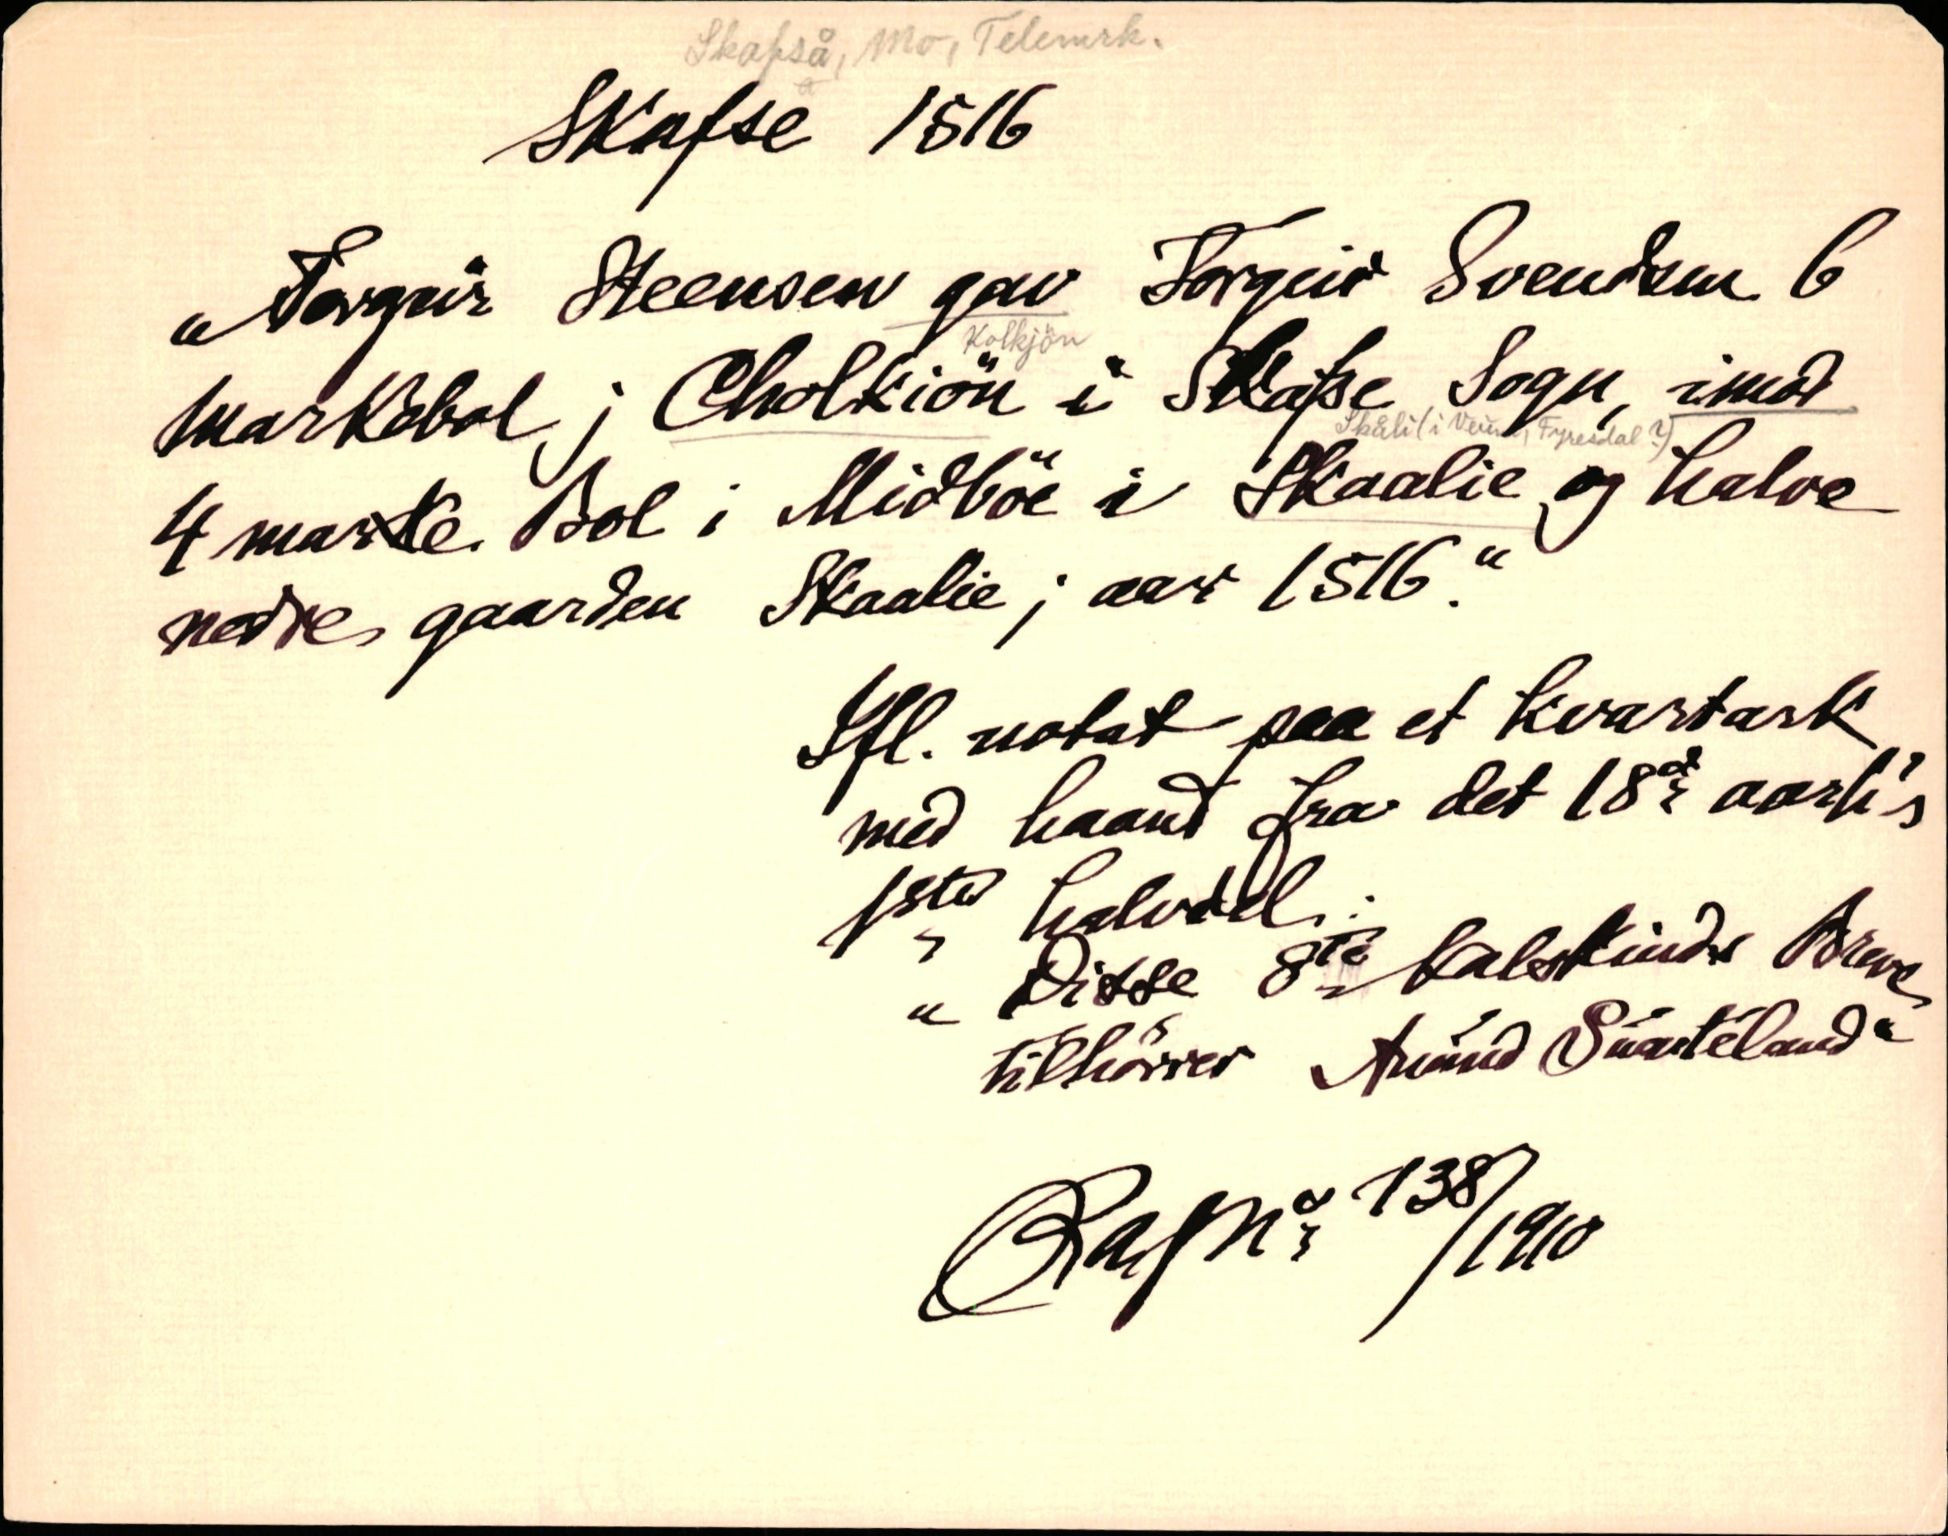 Skafså, Mo, Telemrk.
Skafse 1516
„Torgeir Steensen gav Torgeir Svendsen 6
Kolkjön
markebol j Cholkiön i Skafse Sogn, imod
Skåli (i Veum, Fyresdal?)
4 marke Bol i Midböe i Skaalie og halve
nedre gaarden Skaalie j aar 1516."
Ifl. notat paa et kvartark
med haand fra det 18de aarh's
1ste halvdel:
„Disse 8te kalskinds Breve
tilhörrer Aŭŭnd Sŭarteland"
RA J No 138/1910